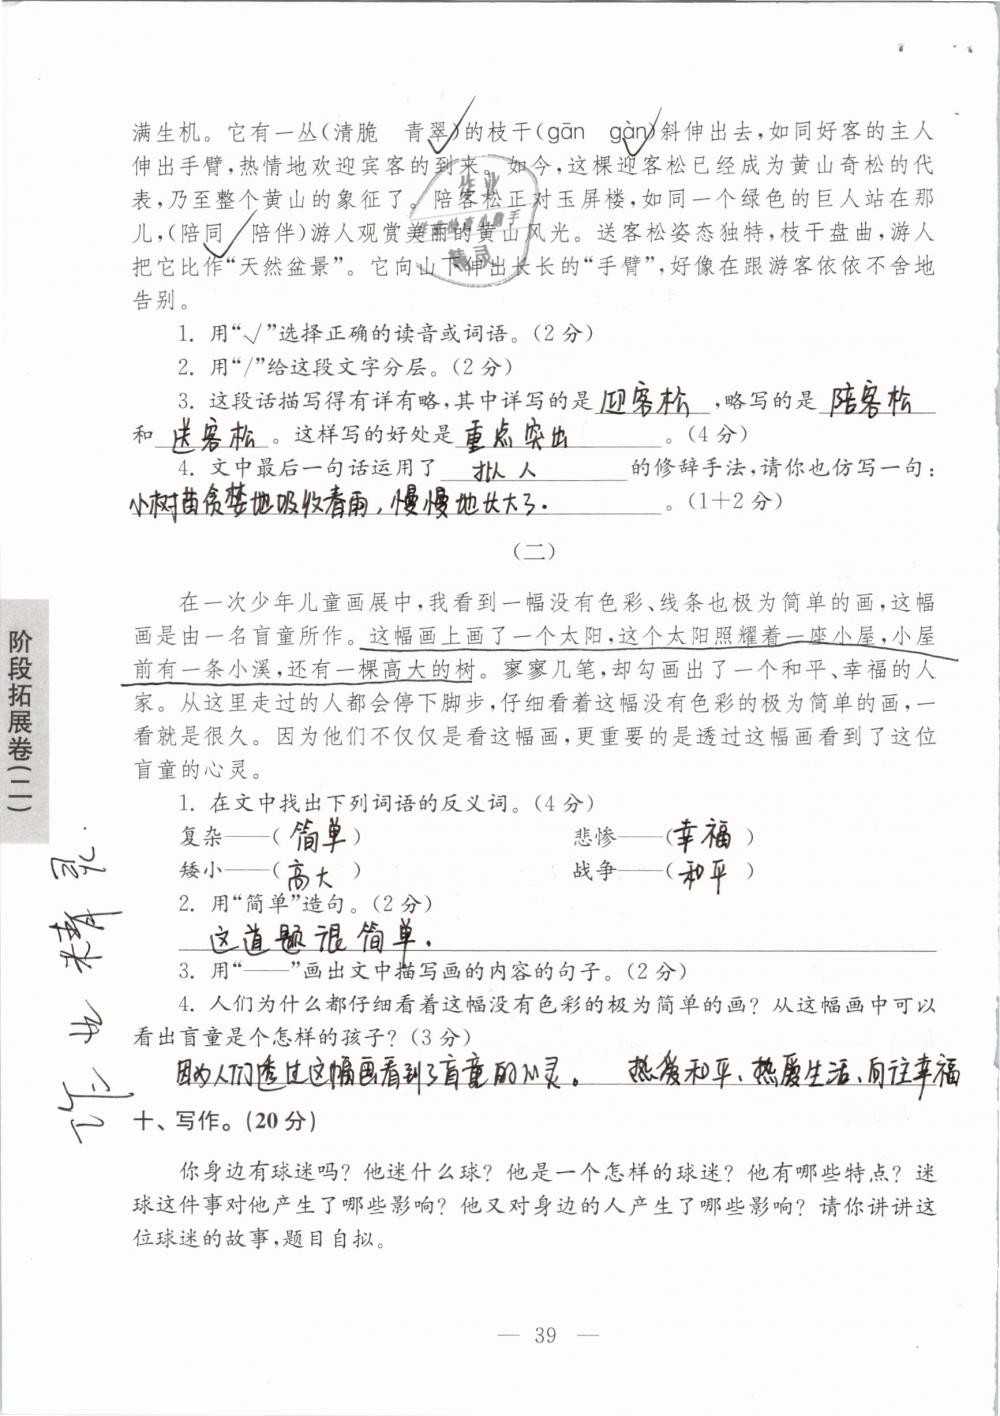 满生机。它有一丛(清脆　青翠√)的枝干(gān　gàn√)斜伸出去,如同好客的主人
伸出手臂,热情地欢迎宾客的到来。如今,这棵迎客松已经成为黄山奇松的代
表,乃至整个黄山的象征了。陪客松正对玉屏楼,如同一个绿色的巨人站在那
儿,(陪同√　陪伴)游人观赏美丽的黄山风光。送客松姿态独特,枝干盘曲,游人
把它比作“天然盆景”。它向山下伸出长长的“手臂”,好像在跟游客依依不舍地
告别。
1. 用“√”选择正确的读音或词语。(2分)
2. 用“/”给这段文字分层。(2分)
3. 这段话描写得有详有略,其中详写的是 迎客松 ,略写的是 陪客松
和 送客松 。这样写的好处是 重点突出 。(4分)
4. 文中最后一句话运用了 拟人 的修辞手法,请你也仿写一句:
小树苗贪婪地吸收春雨,慢慢地长大了. 。(1+2分)
(二)
在一次少年儿童画展中,我看到一幅没有色彩、线条也极为简单的画,这幅
画是由一名盲童所作。这幅画上画了一个太阳,这个太阳照耀着一座小屋,小屋
前有一条小溪,还有一棵高大的树。寥寥几笔,却勾画出了一个和平、幸福的人
家。从这里走过的人都会停下脚步,仔细看着这幅没有色彩的极为简单的画,一
看就是很久。因为他们不仅仅是看这幅画,更重要的是透过这幅画看到了这位
盲童的心灵。
1. 在文中找出下列词语的反义词。(4分)
复杂——( 简单 )　悲惨——( 幸福 )
矮小——( 高大 )　战争——( 和平 )
2. 用“简单”造句。(2分)
这道题很简单.
3. 用“——”画出文中描写画的内容的句子。(2分)
4. 人们为什么都仔细看着这幅没有色彩的极为简单的画? 从这幅画中可以
看出盲童是个怎样的孩子? (3分)
因为人们透过这幅画看到了盲童的心灵。　热爱和平、热爱生活、向往幸福
十、写作。(20分)
你身边有球迷吗? 他迷什么球? 他是一个怎样的球迷? 他有哪些特点? 迷
球这件事对他产生了哪些影响? 他又对身边的人产生了哪些影响? 请你讲讲这
位球迷的故事,题目自拟。
— 39 —
阶段拓展卷(二)
作业精灵.
作业
精灵